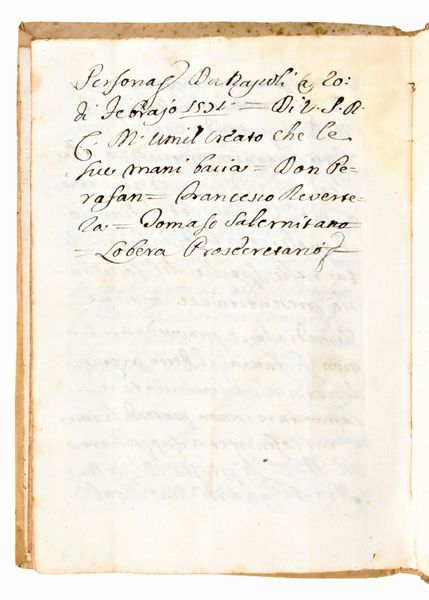 Personas Da Napoli a 20:
di Febrajo 1571 = Di V. S. R.
C. M. umil creato che le
sue mani bacia = Don Pe-
rafan = Francesco Reverte-
ra = Tomaso Salernitano
= Lobera Prosecretario